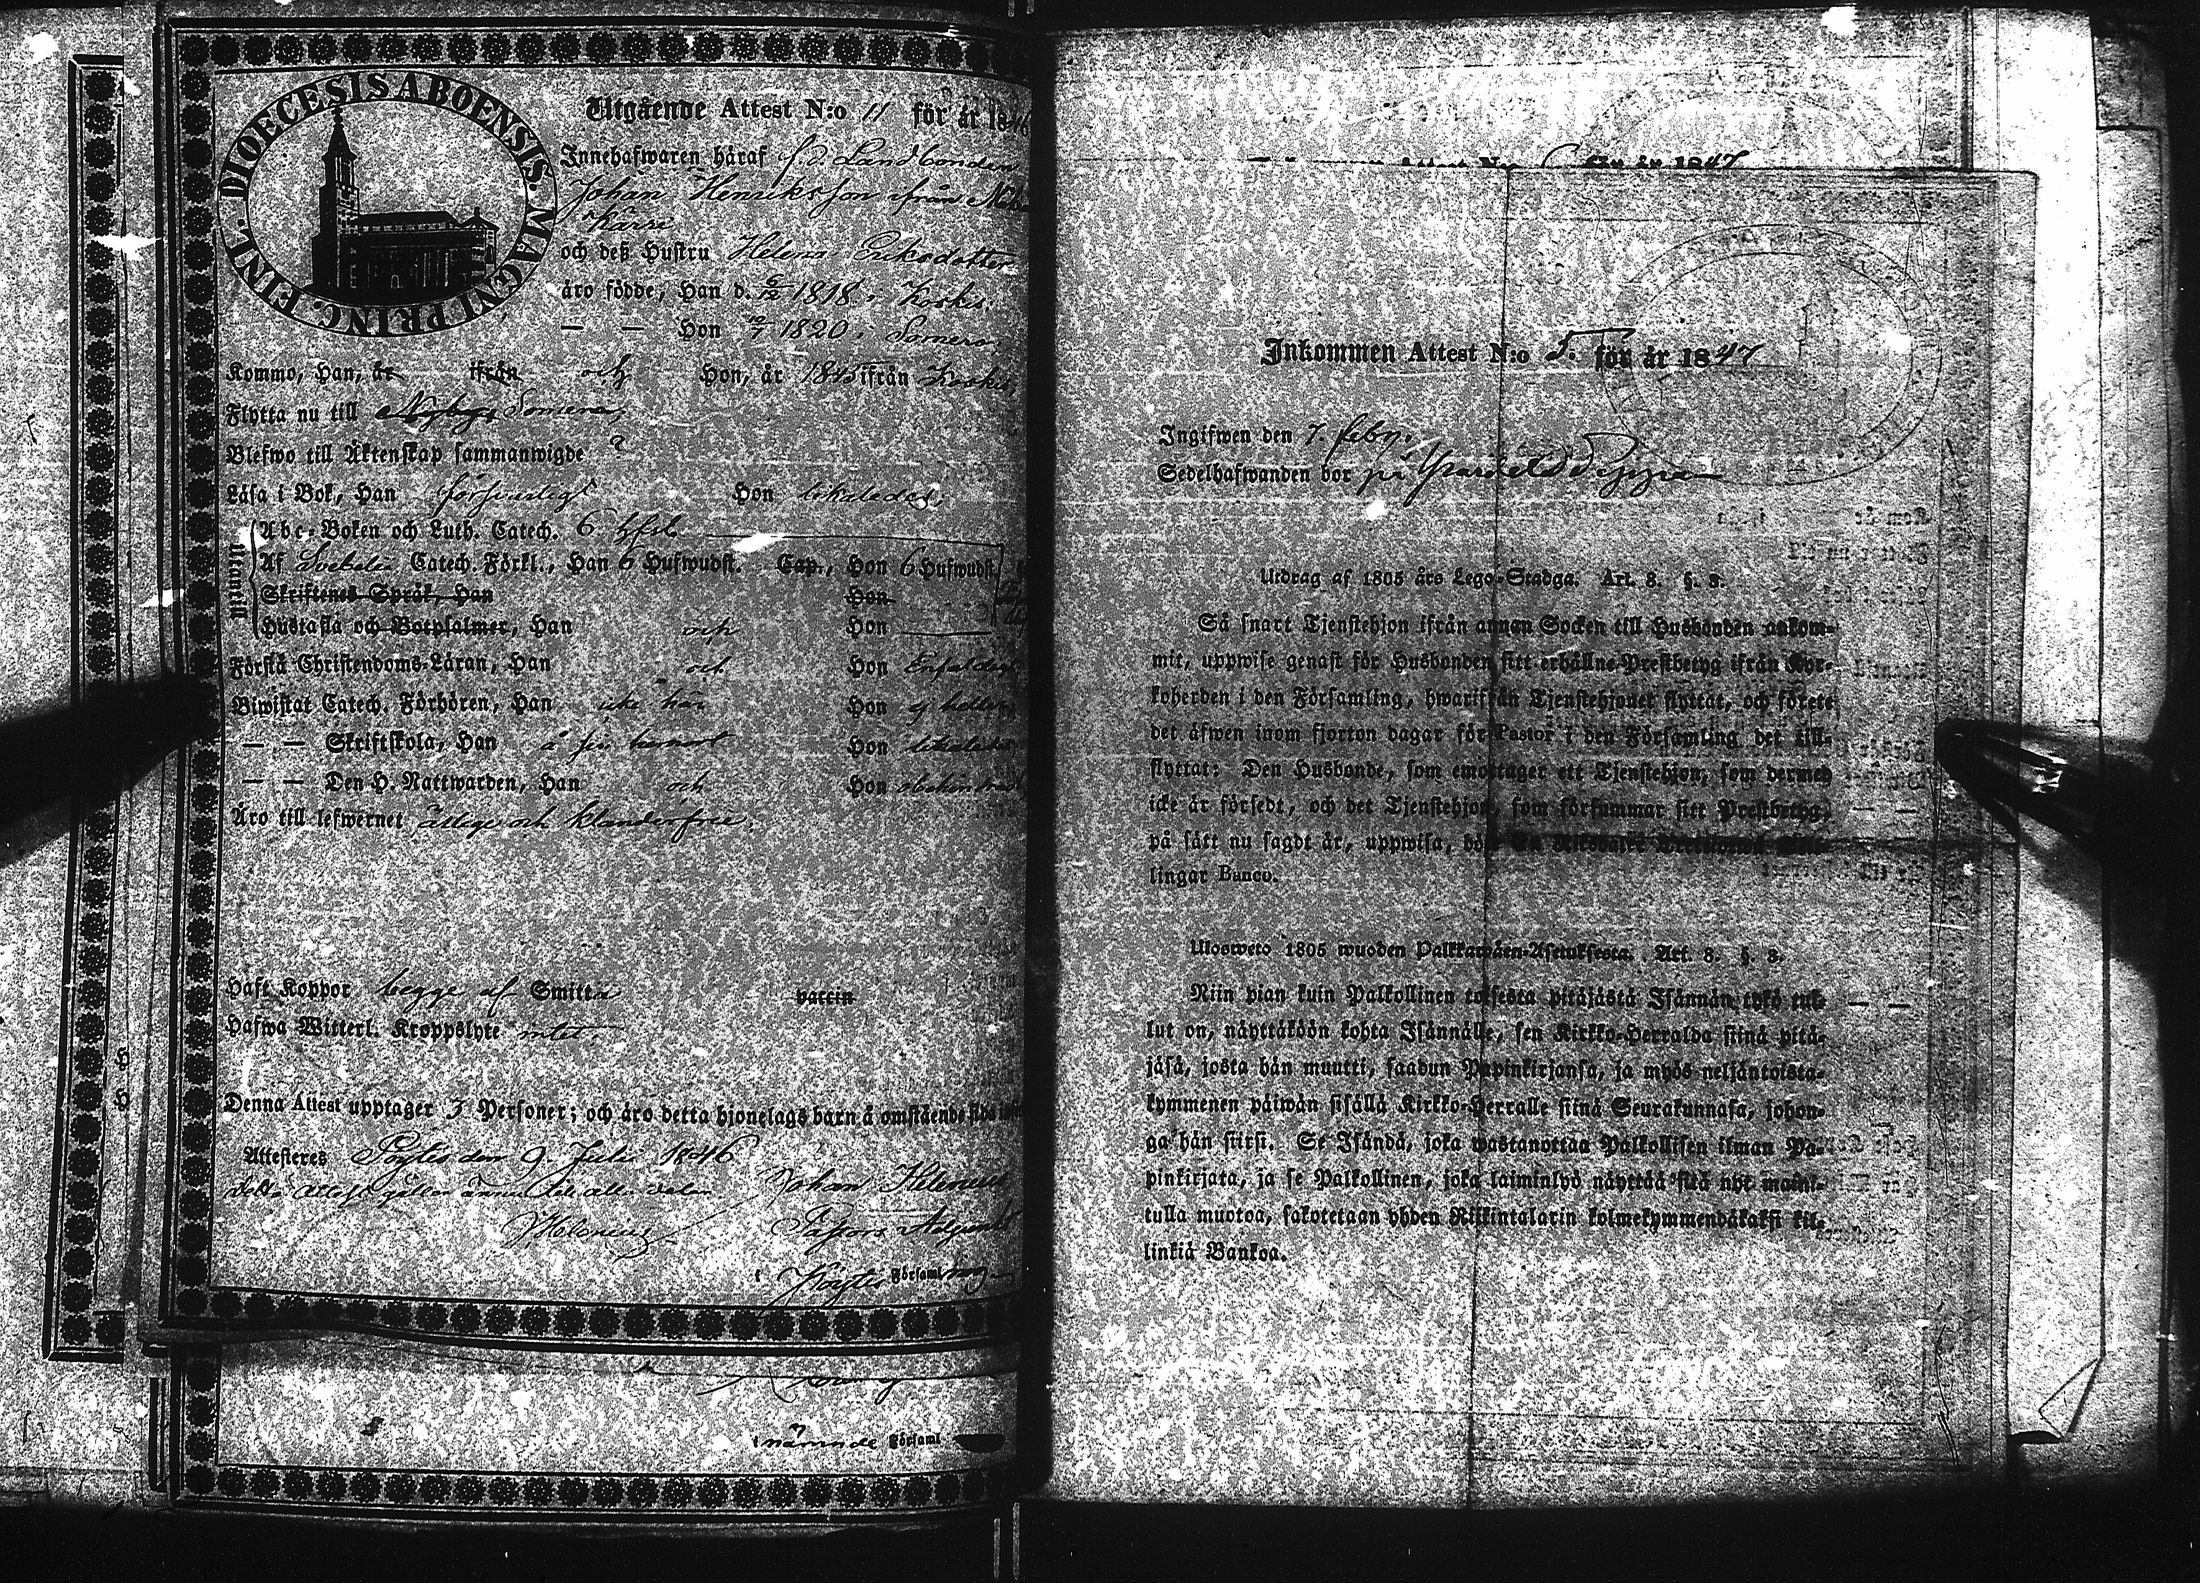 FINL. DIOECESIS ABOENSIS. MAGNI PRINC.
Utgående Attest N:o 11 för år 1846
Innehafwaren häraf f. d. Landbonden
Johan Henriksson från
Kärri
och deß Hustru Helena Eriksdotter
äro födde, Han d. 6/12 1818 i Koskis.
— — Hon 10/7 1820 i Somero
Kommo, Han, år ifrån och Hon, år 1845 ifrån Koskis
Flytta nu till Somero,
Blefwo till Äktenskap sammanwigde ?
Läsa i Bok, Han försvarligt Hon likaledes,
Utantill
Abc-Boken och Luth. Catech. 6 hfst.
Af Svebelii Catech. Förkl., Han 6 Hufwudst. Cap., Hon 6 Hufwudst.
Skriftenes Språk, Han Hon
Hustafla och Botpsalmer, Han och Hon
Förstå Christendoms-Läran, Han och Hon Enfaldigt
Biwistat Catech. Förhören, Han icke här Hon ej heller
— — Skriftskola, Han å sin hemort Hon likaledes
— — Den H. Nattwarden, Han och Hon obehindrad
Äro till lefwernet ärlige och klanderfrie.
Haft Koppor begge af Smitta vaccin
Hafwa Witterl. Kroppslyte intet.
Denna Attest upptager 3 Personer; och äro detta hjonelags barn å omstående sida
Attesteres Pöytis den 9. Julii 1846
Detta attest gäller ännu Johan Helenius
JHelenius Pastors Adjunkt
i Pöytis Församling
H
H
i nämnde Församl
för år 1847
Inkommen Attest N:o 5. för år 1847
Ingifwen den 7. febr.
Sedelhafwanden bor på
Utdrag af 1805 års Lego-Stadga. Art. 8. §. 3.
Så snart Tjenstehjon ifrån annan Socken till Husbonden ankom-
mit, uppwise genast för Husbonden sitt erhållne Prestbetyg ifrån Kyr-
koherden i den Församling, hwarifrån Tjenstehjonet flyttat, och förete
det äfwen inom fjorton dagar för Pastor i den Församling det till-
flyttat: Den Husbonde, som emottager ett Tjenstehjon, som dermed
icke är försedt, och det Tjenstehjon, som försummar sitt Prestbetyg,
på sätt nu sagdt är, uppwisa,
lingar Banco.
Ulosweto 1805 wuoden Palkkawäen-Asetuksesta. Art. 8. §. 3.
Niin pian kuin Palkollinen toisesta pitäjästä Isännän tykö tul-
lut on, näyttäköön kohta Isännälle, sen Kirkko-Herralda siinä pitä-
jäsä, josta hän muutti, saadun Papinkirjansa, ja myös neljäntoista-
kymmenen päiwän sisällä Kirkko-Herralle siinä Seurakunnasa, johon-
ga hän siirsi. Se Isändä, joka wastanottaa Palkollisen ilman Pa-
pinkirjata, ja se Palkollinen, joka laiminlyö näyttää sitä nyt maini-
tulla muotoa, sakotetaan yhden Riikintalarin kolmekymmendäkaksi kil-
linkiä Bankoa.